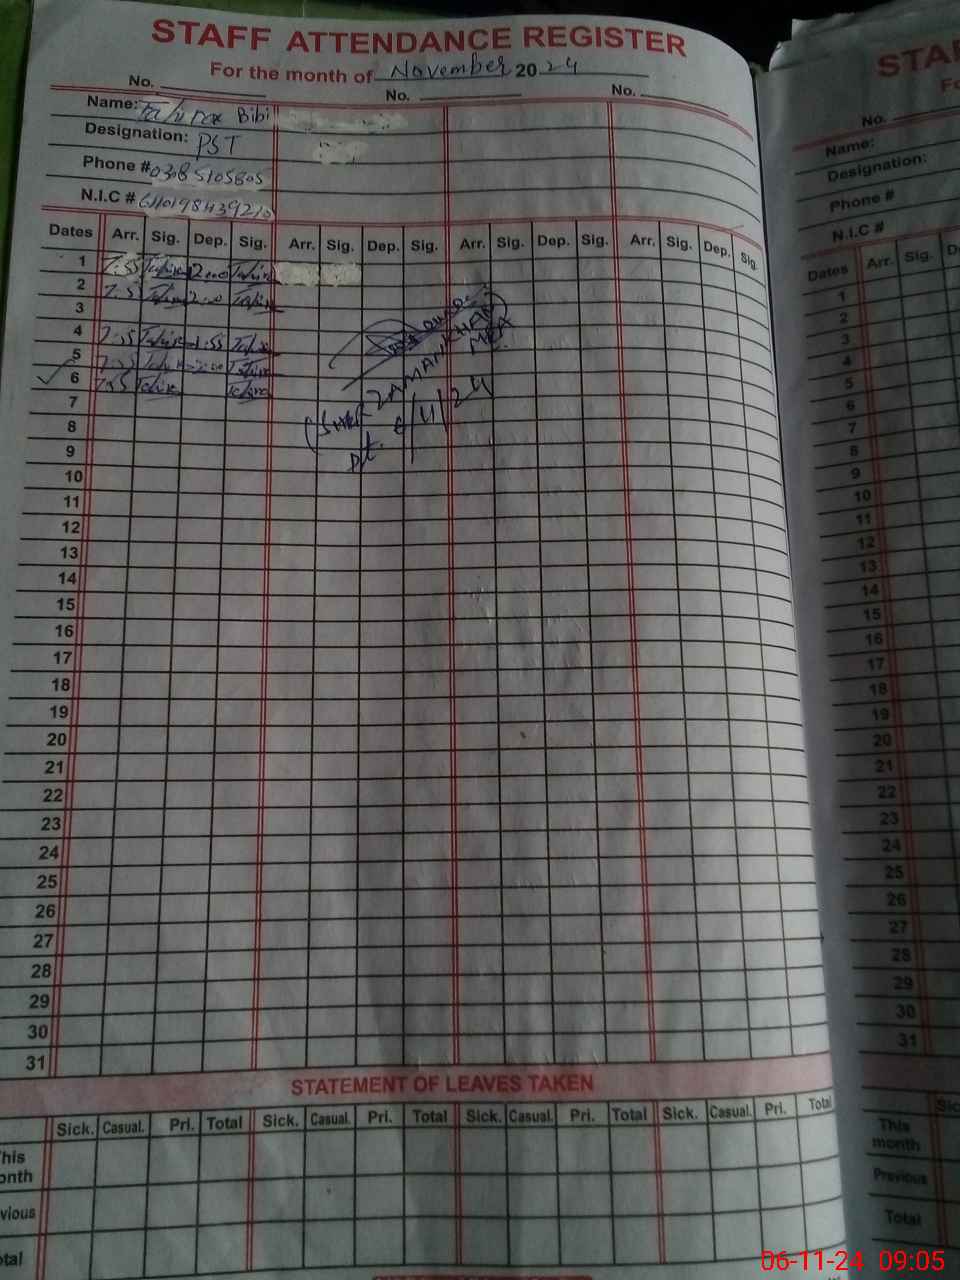 STAFF ATTENDANCE REGISTER
For the month of November 2024
No. No. No.
Name: Bibi
Designation: PST
Phone # 03085105805
N.I.C #
Dates Arr. Sig. Dep. Sig. Arr. Sig. Dep. Sig. Arr. Sig. Dep. Sig. Arr. Sig. Dep. Sig.
1 7:55 Tahira 2:00 Tahira
2 7:55 Tahira 2:00 Tahira
3
4 7:55 Tahira 1:55 Tahira
5 7:55 Tahira 2:00 Tahira
6 7:55 Tahira Tahira
ZAMAN KHAN
MEA
Dt. 6/11/24
7
8
9
10
11
12
13
14
15
16
17
18
19
20
21
22
23
24
25
26
27
28
29
30
31
STATEMENT OF LEAVES TAKEN
Sick. Casual. Pri. Total Sick. Casual. Pri. Total Sick. Casual. Pri. Total Sick. Casual. Pri. Total
his
onth
vious
otal
STAF
Fo
No.
Name:
Designation:
Phone #
N.I.C #
Dates Arr. Sig. D
1
2
3
4
5
6
7
8
9
10
11
12
13
14
15
16
17
18
19
20
21
22
23
24
25
26
27
28
29
30
31
Sic
This
month
Previous
Total
06-11-24 09:05